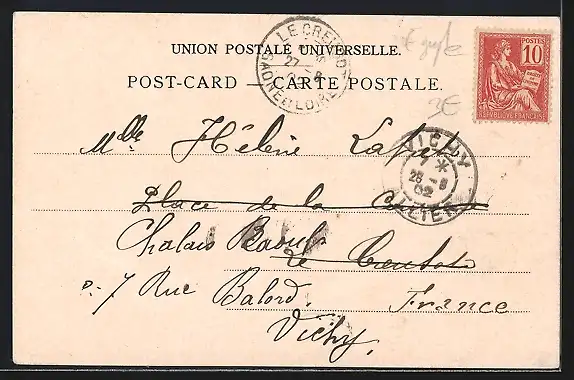 UNION POSTALE UNIVERSELLE.
POST-CARD — CARTE POSTALE.
LE CREUSOT
27 - 8
SAONE-ET-LOIRE
POSTES
10
RÉPUBLIQUE FRANÇAISE
3€
VICHY
28 - 8
02
ALLIER
Mlle Hélène
Place de la
Chalais
Le Creusot
7 Rue Balord.
France
Vichy,